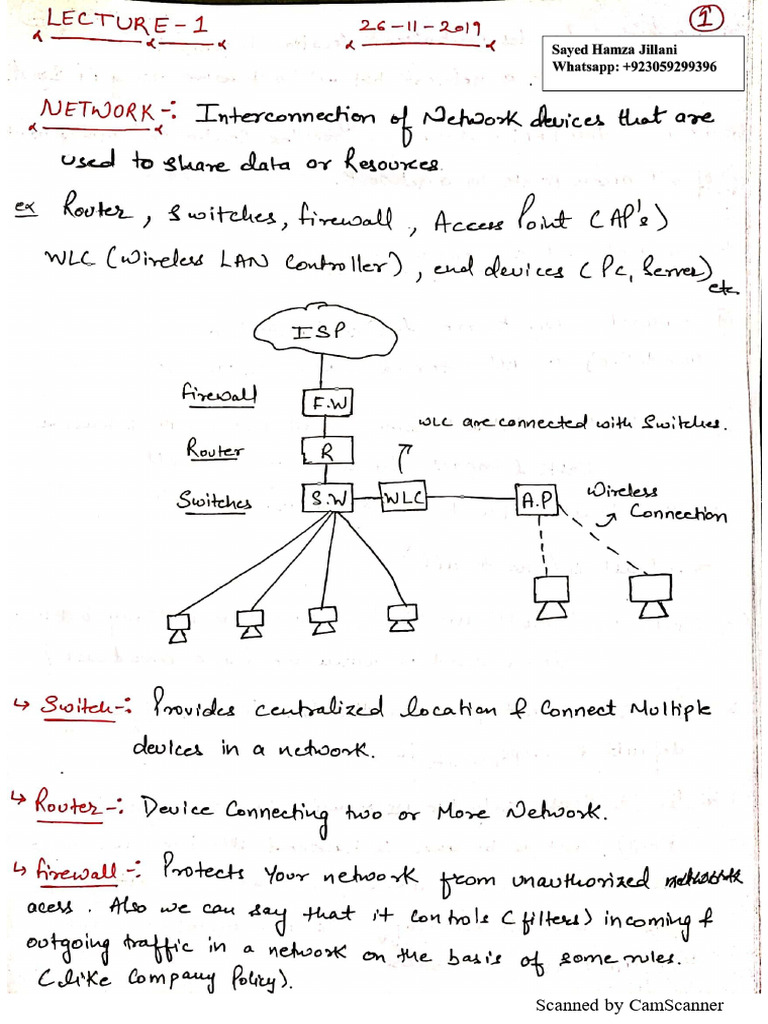 LECTURE-1
26-11-2019
1
Sayed Hamza Jillani
Whatsapp: +923059299396
NETWORK-: Interconnection of Network devices that are
used to share data or Resources.
ex Router, Switches, firewall, Access Point (AP's)
WLC (Wireless LAN Controller), end devices (Pc, Server)
etc
ISP
firewall
F.W
WLC are connected with Switches.
Router
R
Switches
S.W
WLC
A.P
Wireless
Connection
↳ Switch-: Provides centralized location & Connect Multiple
devices in a network.
↳ Router-: Device Connecting two or More Network.
↳ firewall-: Protects Your network from unauthorized
acess. Also we can say that it controls (filters) incoming &
outgoing traffic in a network on the basis of some rules.
(like Company Policy).
Scanned by CamScanner